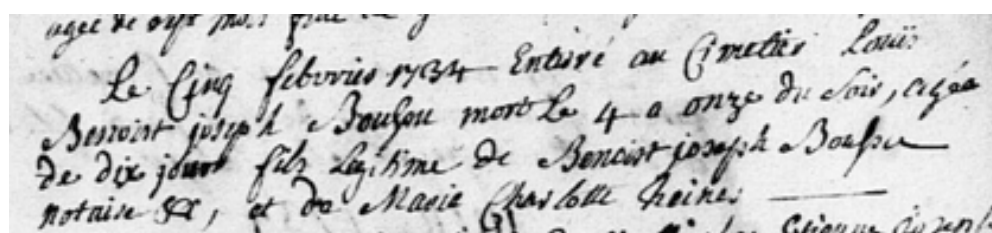 agée de sept mois fille de
Le Cinq febvrier 1734 Enteré au Cimetier Louïs
Benoist joseph Boussou mort Le 4 a onze du soir, agée
de dix jour fils Legitime de Benoist joseph Boussu
notaire &c, et de Marie Charlotte